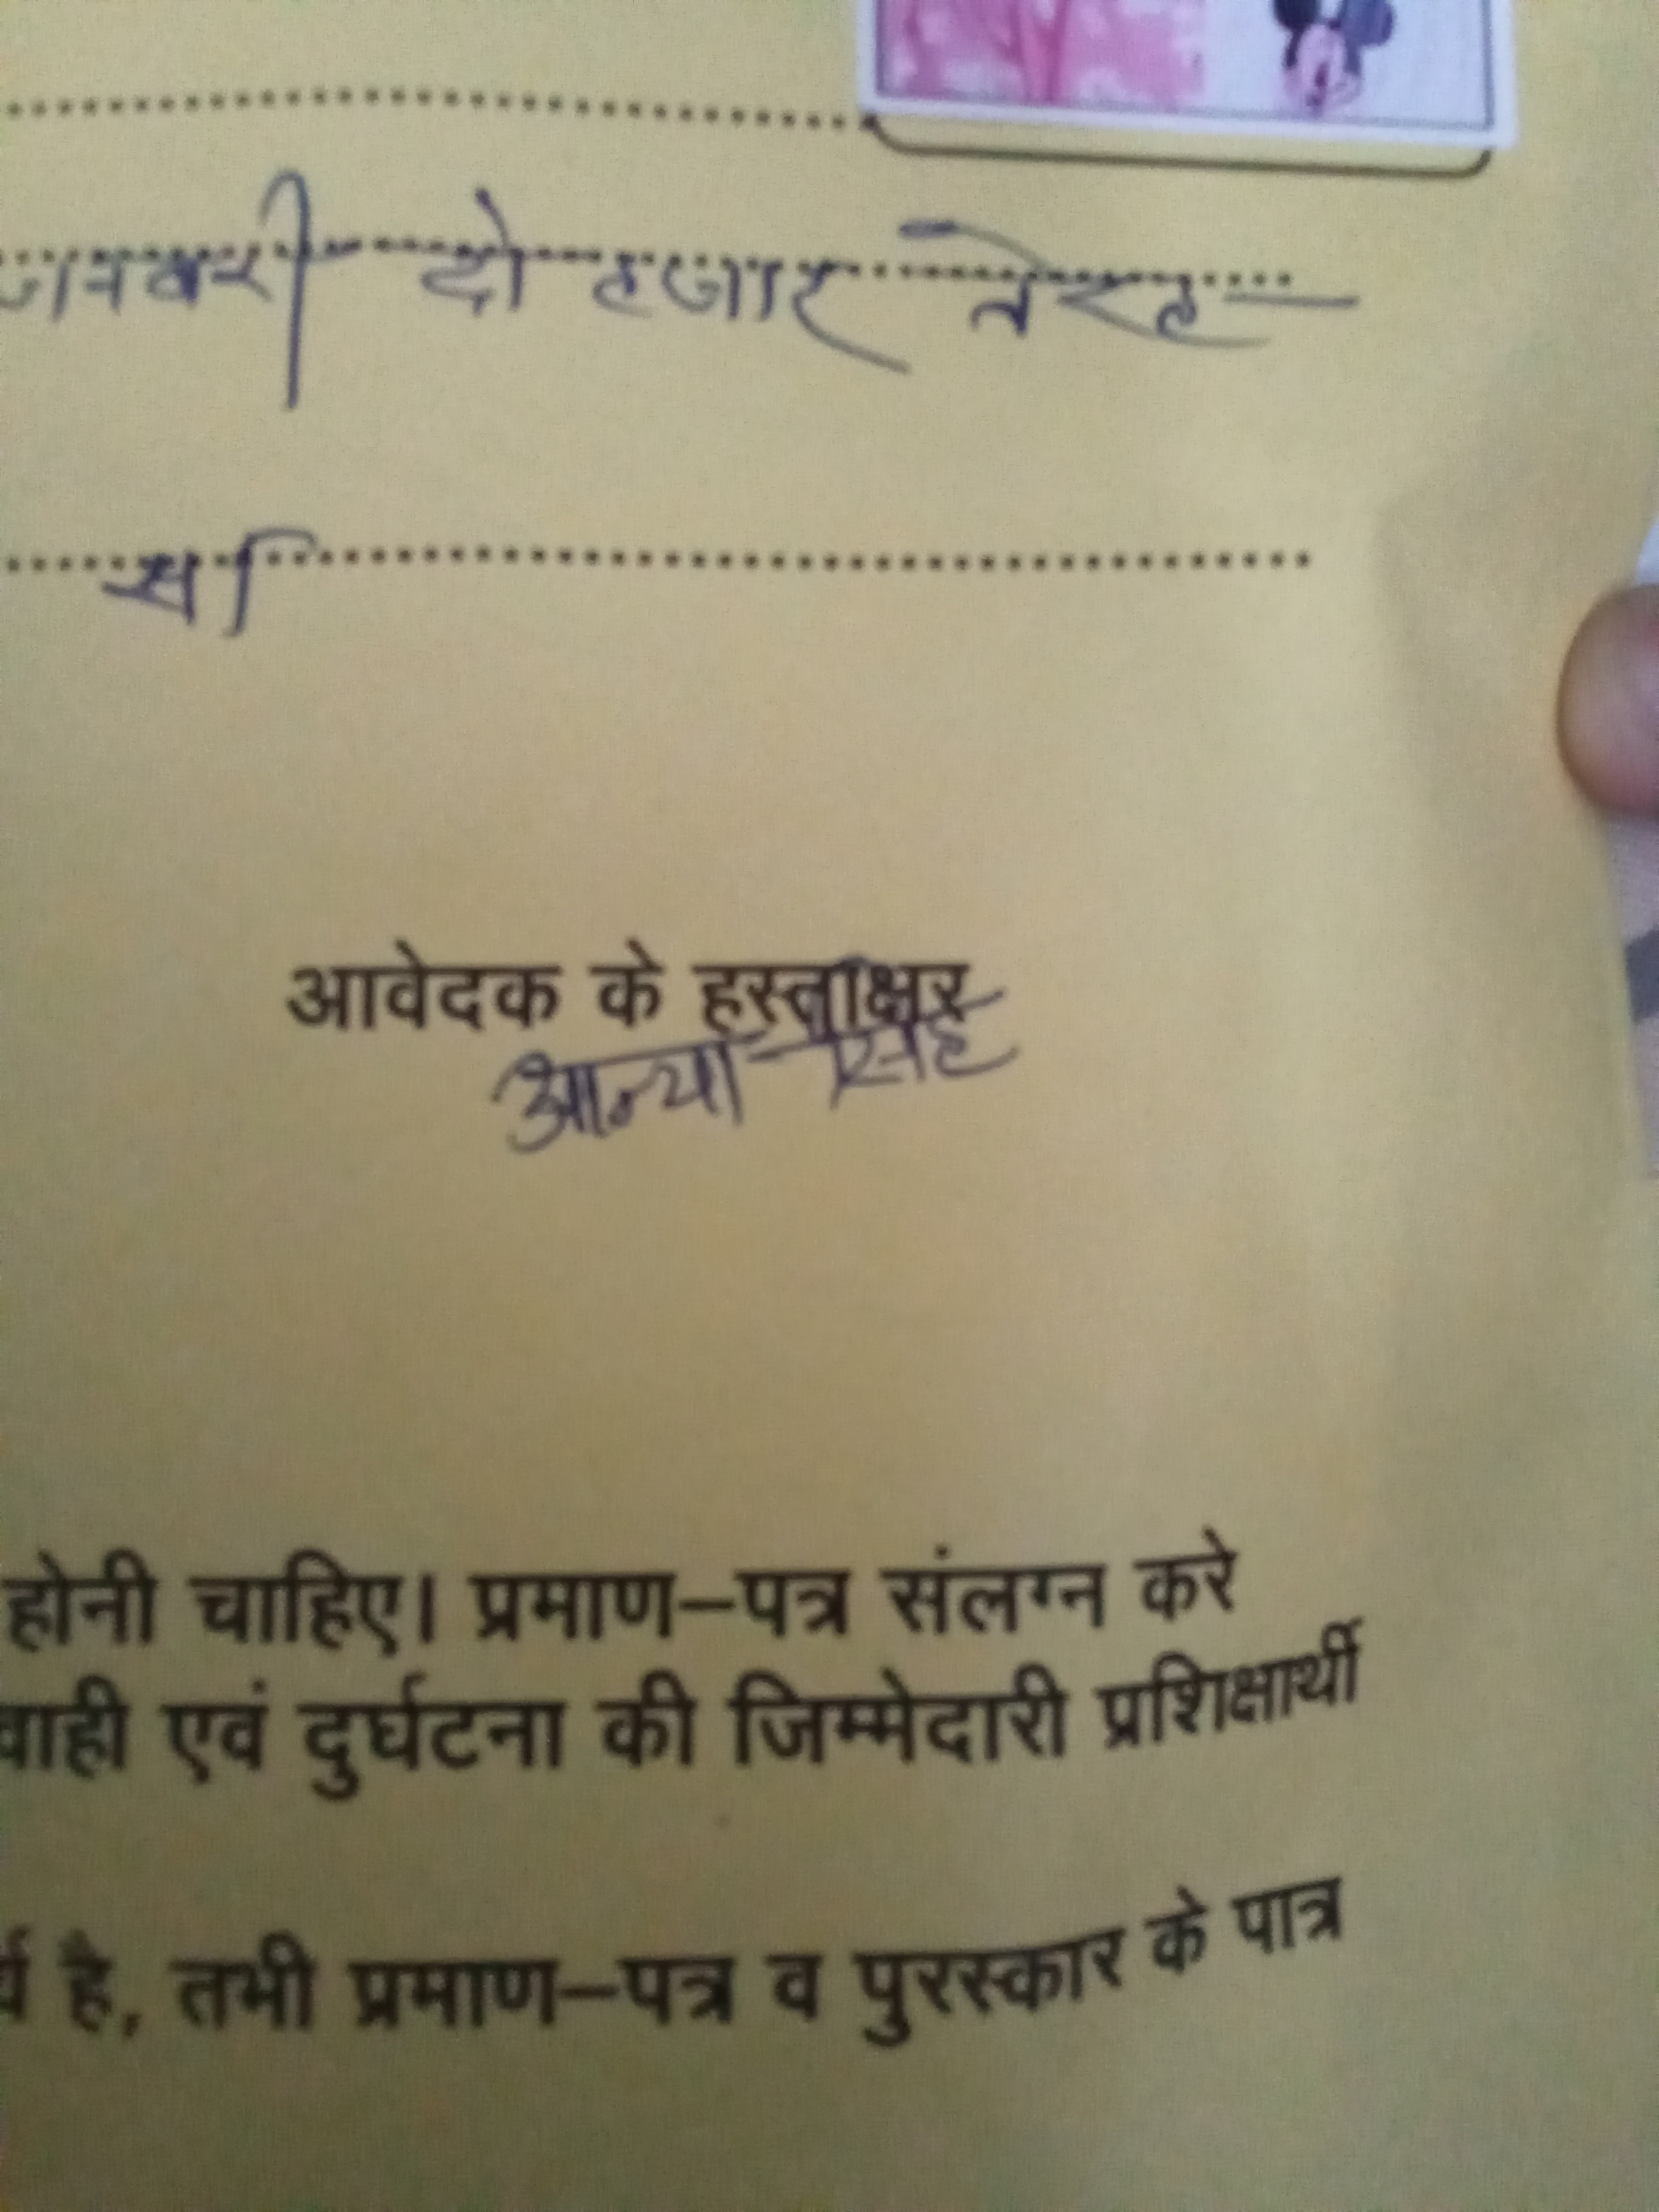 जनवरी दो हजार तेरह
आवेदक के हस्ताक्षर
आन्या सिंह
होनी चाहिए। प्रमाण–पत्र संलग्न करे
वाही एवं दुर्घटना की जिम्मेदारी प्रशिक्षार्थी
है, तभी प्रमाण–पत्र व पुरस्कार के पात्र